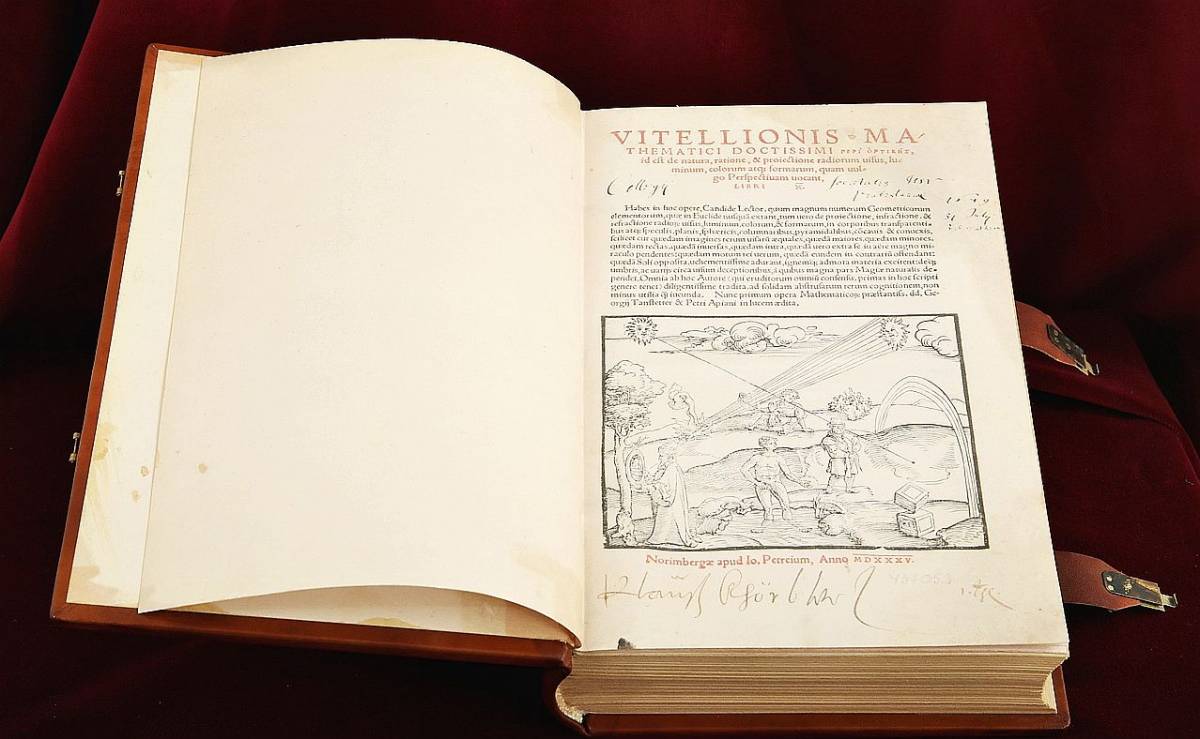 VITELLIONIS MA/
THEMATICI DOCTISSIMI περὶ ὀπτικῆς,
id est de natura, ratione, & proiectione radiorum uisus, lu-
minum, colorum atq; formarum, quam uul-
go Perspectiuam uocant,
LIBRI X.
Collegij Societatis
Habes in hoc opere, Candide Lector, quum magnum numerum Geometricorum
elementorum, quæ in Euclide nusquā extant, tum uero de proiectione, infractione, &
refractione radiorū uisus, luminum, colorum, & formarum, in corporibus transparenti-
bus atq; speculis, planis, sphæricis, columnaribus, pyramidalibus, cōcauis & conuexis,
scilicet cur quædam imagines rerum uisarū æquales, quædā maiores, quædam minores,
quædam rectas, quædā inuersas, quædam intra, quædā uero extra se in aëre magno mi-
raculo pendentes: quædam motum rei uerum, quædā eundem in contrariū ostendant:
quædā Soli opposita, uehementissime adurant, ignemq; admota materia excitent: deq;
umbris, ac uarijs circa uisum deceptionibus, à quibus magna pars Magiæ naturalis de-
pendet. Omnia ab hoc Autore (qui eruditorum omniū consensu, primas in hoc scripti
genere tenet) diligentissime tradita, ad solidam abstrusarum rerum cognitionem, non
minus utilia q̄ iucunda. Nunc primum opera Mathematicorū præstantiss. dd. Ge-
orgij Tanstetter & Petri Apiani in lucem ædita.
Norimbergæ apud Io. Petreium, Anno MDXXXV.